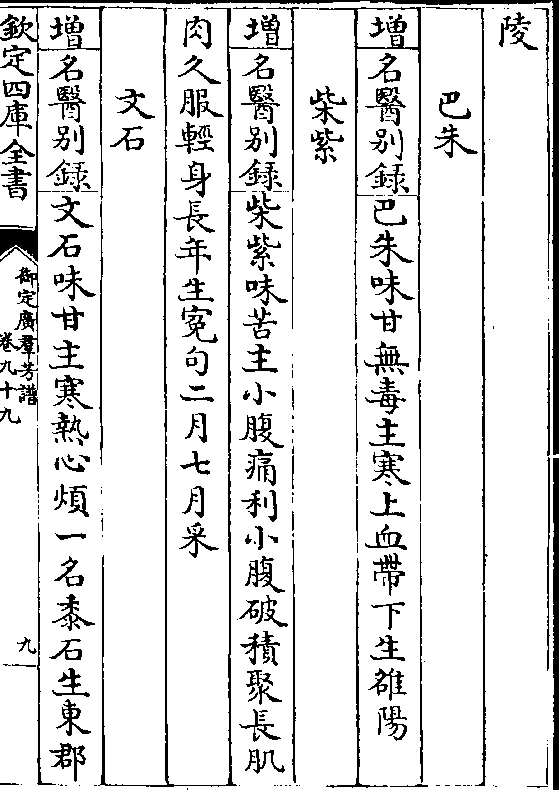 陵
巴朱
增名醫别録巴朱味甘無毒主寒上血帶下生雒陽
柴紫
增名醫别録柴紫味苦主小腹痛利小腹破積聚長肌
肉久服輕身長年生冤句二月七月采
文石
增名醫别録文石味甘主寒熱心煩一名黍石生東郡
欽定四庫全書
御定廣羣芳譜
卷九十九
九